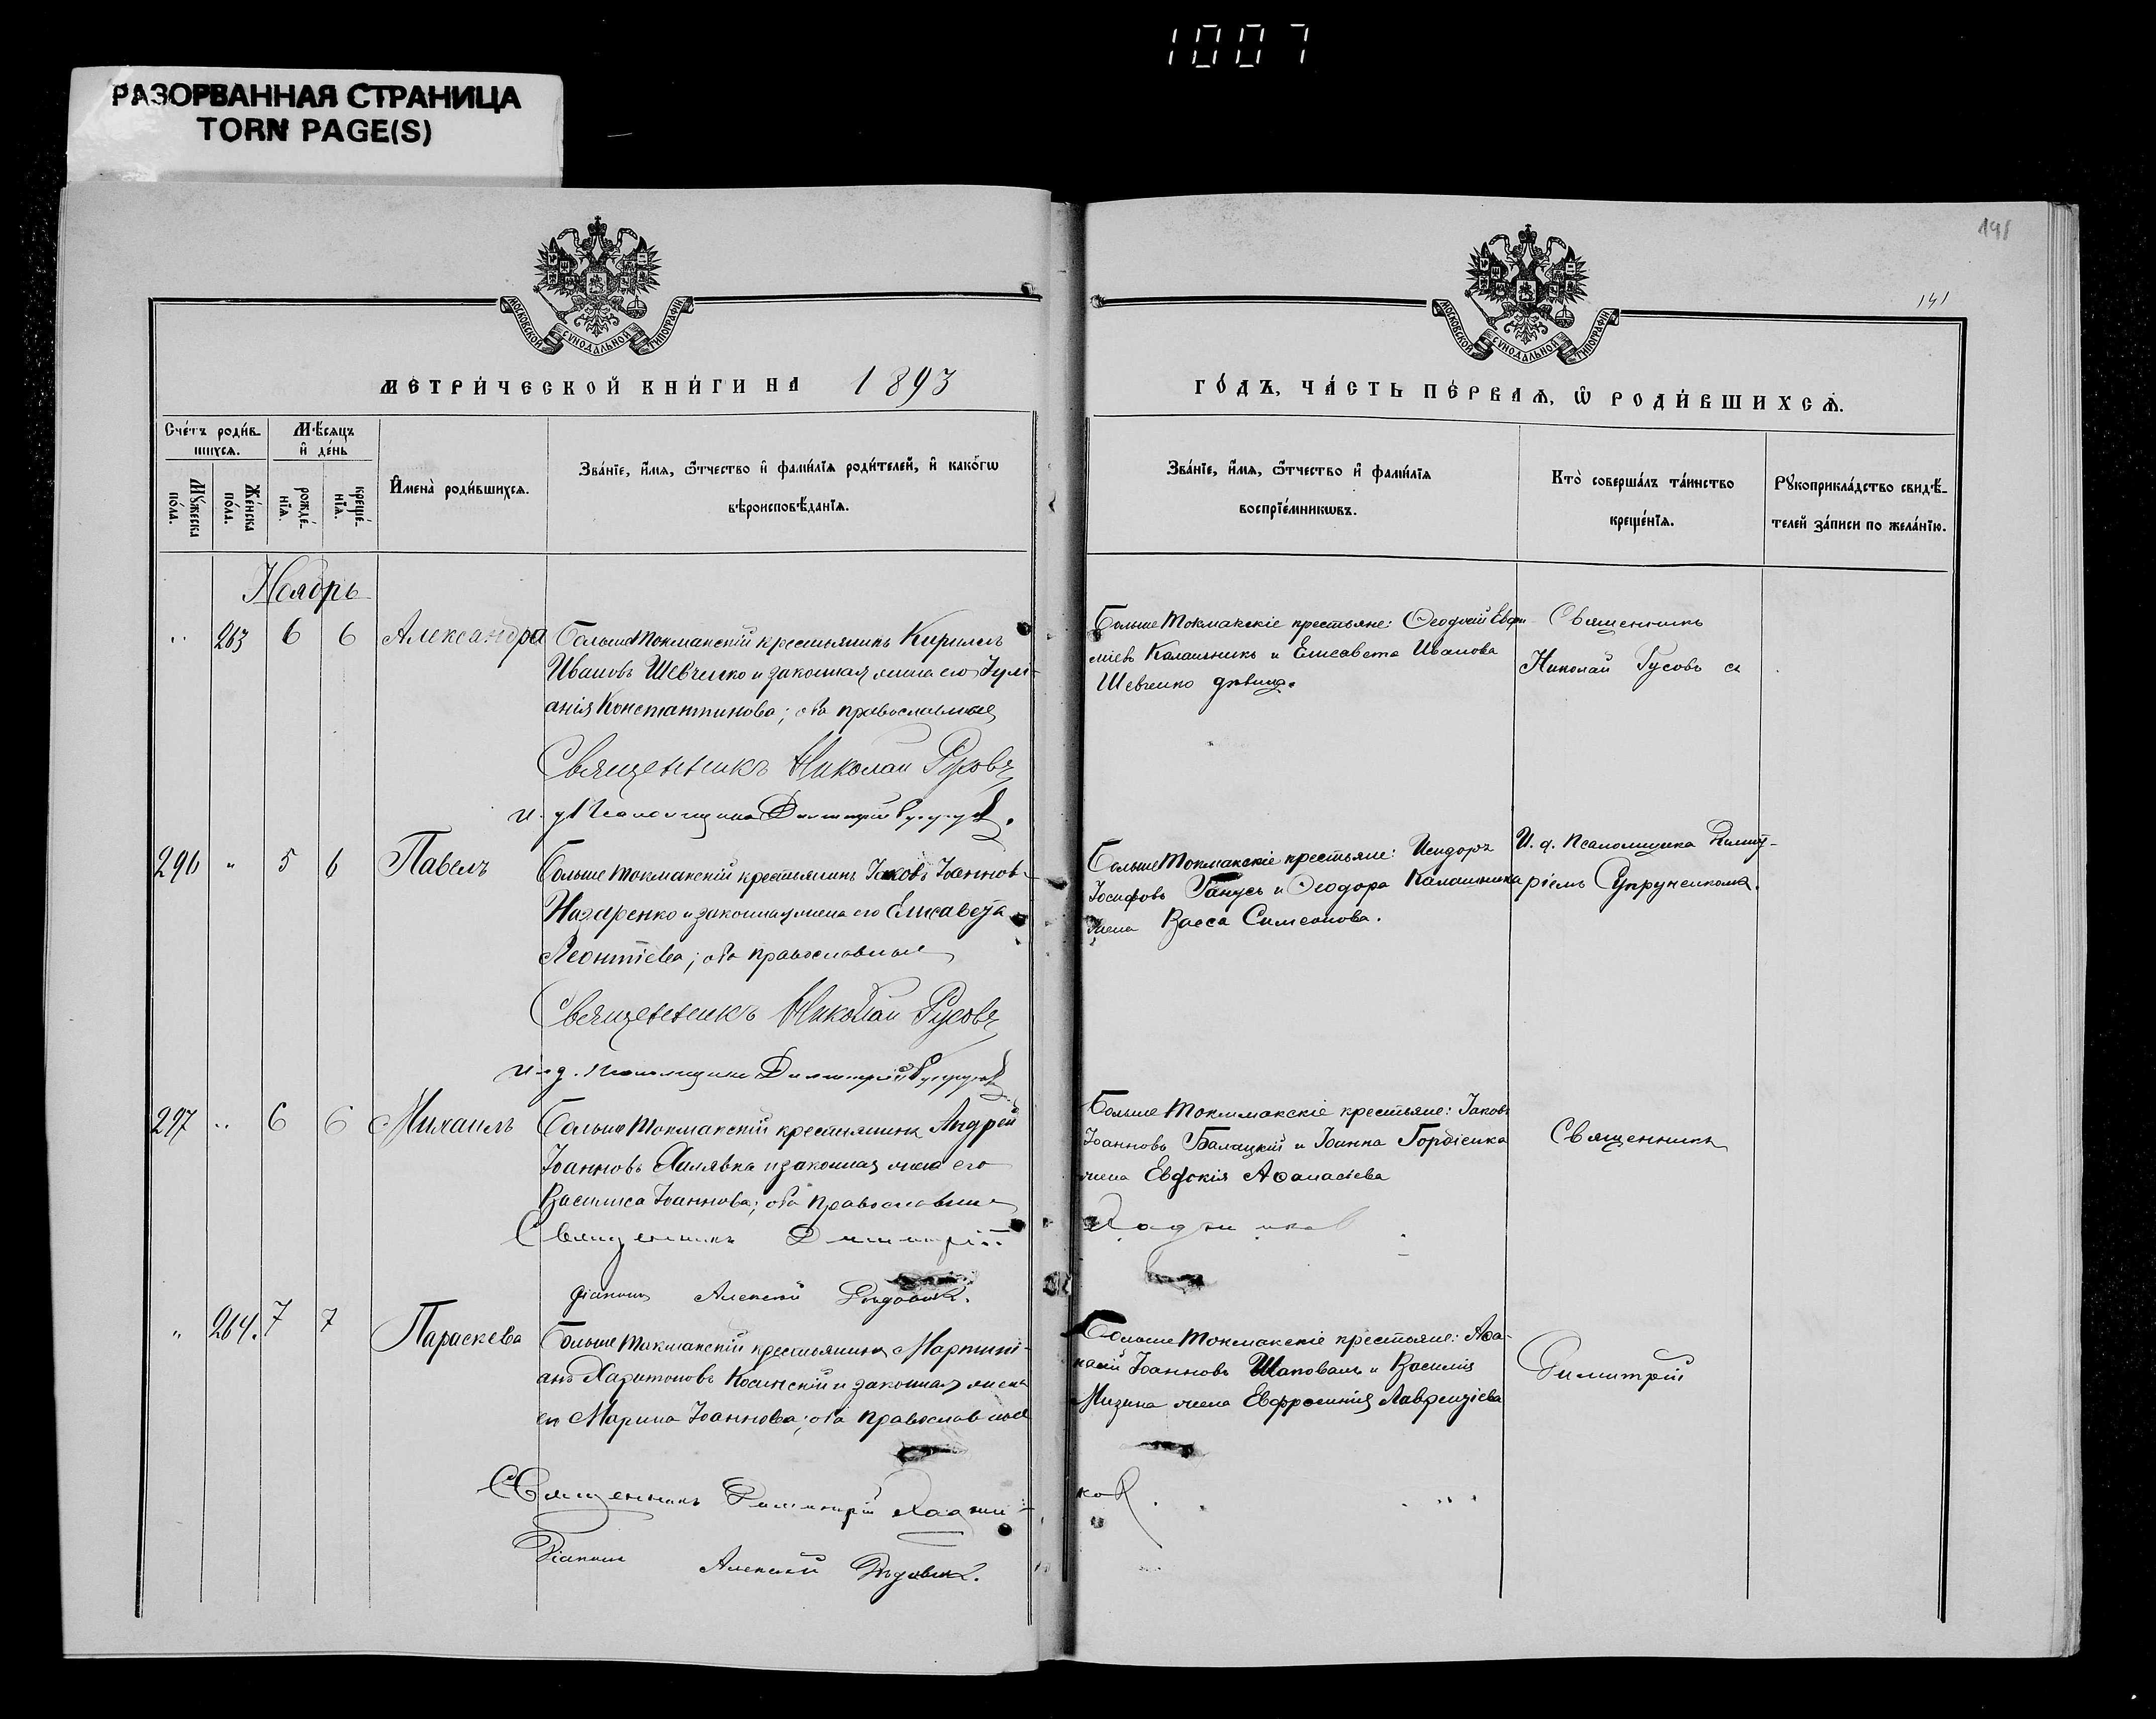 1007
РАЗОРВАННАЯ СТРАНИЦА
TORN PAGE(S)
141
141
МОСКОВСКОЙ СѴНОДАЛЬНОЙ ТИПОГРАФІИ
МОСКОВСКОЙ СѴНОДАЛЬНОЙ ТИПОГРАФІИ
МЕТРИ́ЧЕСКОЙ КНИ́ГИ НА 1893
ГО́ДЪ, ЧА́СТЬ ПЕ́РВАѦ, Ѡ҆ РОДИ́ВШИХСѦ.
Сче́тъ роди́в-
шихсѧ.
Мѣ́сяцъ
и҆ де́нь
Мꙋ́жеска
по́ла.
Же́нска
по́ла.
рожде́-
нїѧ.
креще́-
нїѧ.
И҆мена̀ роди́вшихсѧ.
Зва́нїе, и҆́мѧ, ѻ҆́тчество и҆ фами́лїѧ роди́телей, и҆ како́гѡ
вѣроисповѣ́данїѧ.
Зва́нїе, и҆́мѧ, ѻ҆́тчество и҆ фами́лїѧ
воспрїе́мникѡвъ.
Кто̀ соверша́лъ та́инство
креще́нїѧ.
Рꙋкоприкла́дство свидѣ́-
телей за́писи по жела́нїю.
Ноябрь
" 263 6 6 Александра
Больше Токмакскій крестьянинъ Кириллъ
Ивановъ Шевченко и законная жена его Іули-
анія Константинова; оба православные
Священникъ Николай Гусовъ
и. д. Псаломщика Димитрій
Больше Токмакскіе крестьяне: Ѳеодосій Евѳи
міевъ Калашникъ и Елисавета Иванова
Шевченко дѣвица.
Священникъ
Николай Гусовъ съ
296 " 5 6 Павелъ
Больше Токмакскій крестьянинъ Іаковъ Іоаннов-
Назаренко и законная жена его Елисавета
Леонтіева; оба православные
Священникъ Николай Гусовъ
и. д. псаломщика Димитрій
Больше Токмакскіе крестьяне: Исидоръ
Іосифовъ Ганусъ и Ѳеодора Калашника
жена Васса Симеонова.
И. д. Псаломщика Димит-
ріемъ Супруненкомъ.
297 " 6 6 Михаилъ
Больше Токмакскій крестьянинъ Андрей
Іоанновъ Халявка и законная жена его
Василиса Іоаннова; оба православные
Священникъ Димитрій
діаконъ Алексій
Больше Токмакскіе крестьяне: Іаковъ
Іоанновъ Балацкій и Іоанна Гордіенка
жена Евдокія Аѳанасіева
Священникъ
" 264. 7 7 Параскева
Больше Токмакскій крестьянинъ Мартини-
анъ Харитоновъ Косинскій и законная жена
его Марина Іоаннова; оба православные
Священникъ Димитрій
Діаконъ Алексій
Больше Токмакскіе крестьяне: Аѳа-
насій Іоанновъ Шаповалъ и Василія
Мизина жена Евфросинія Лаврентіева
ков
Димитрій